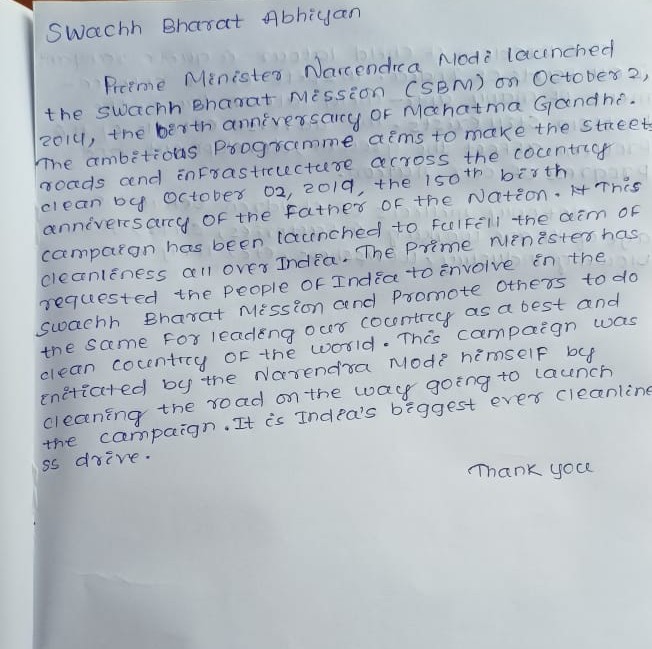 Swachh Bharat Abhiyan
Prime Minister Narendra Modi launched
the Swachh Bharat Mission (SBM) on October 2,
2014, the birth anniversary of Mahatma Gandhi.
The ambitious Programme aims to make the street
roads and infrastructure across the country
clean by October 02, 2019, the 150th birth
anniversary of the Father of the Nation. It This
campaign has been launched to fulfill the aim of
cleanliness all over India. The Prime Minister has
requested the people of India to involve in the
Swachh Bharat Mission and Promote others to do
the same for leading our country as a best and
clean country of the world. This campaign was
initiated by the Narendra Modi himself by
cleaning the road on the way going to launch
the campaign. It is India's biggest ever cleanline
ss drive.
Thank you